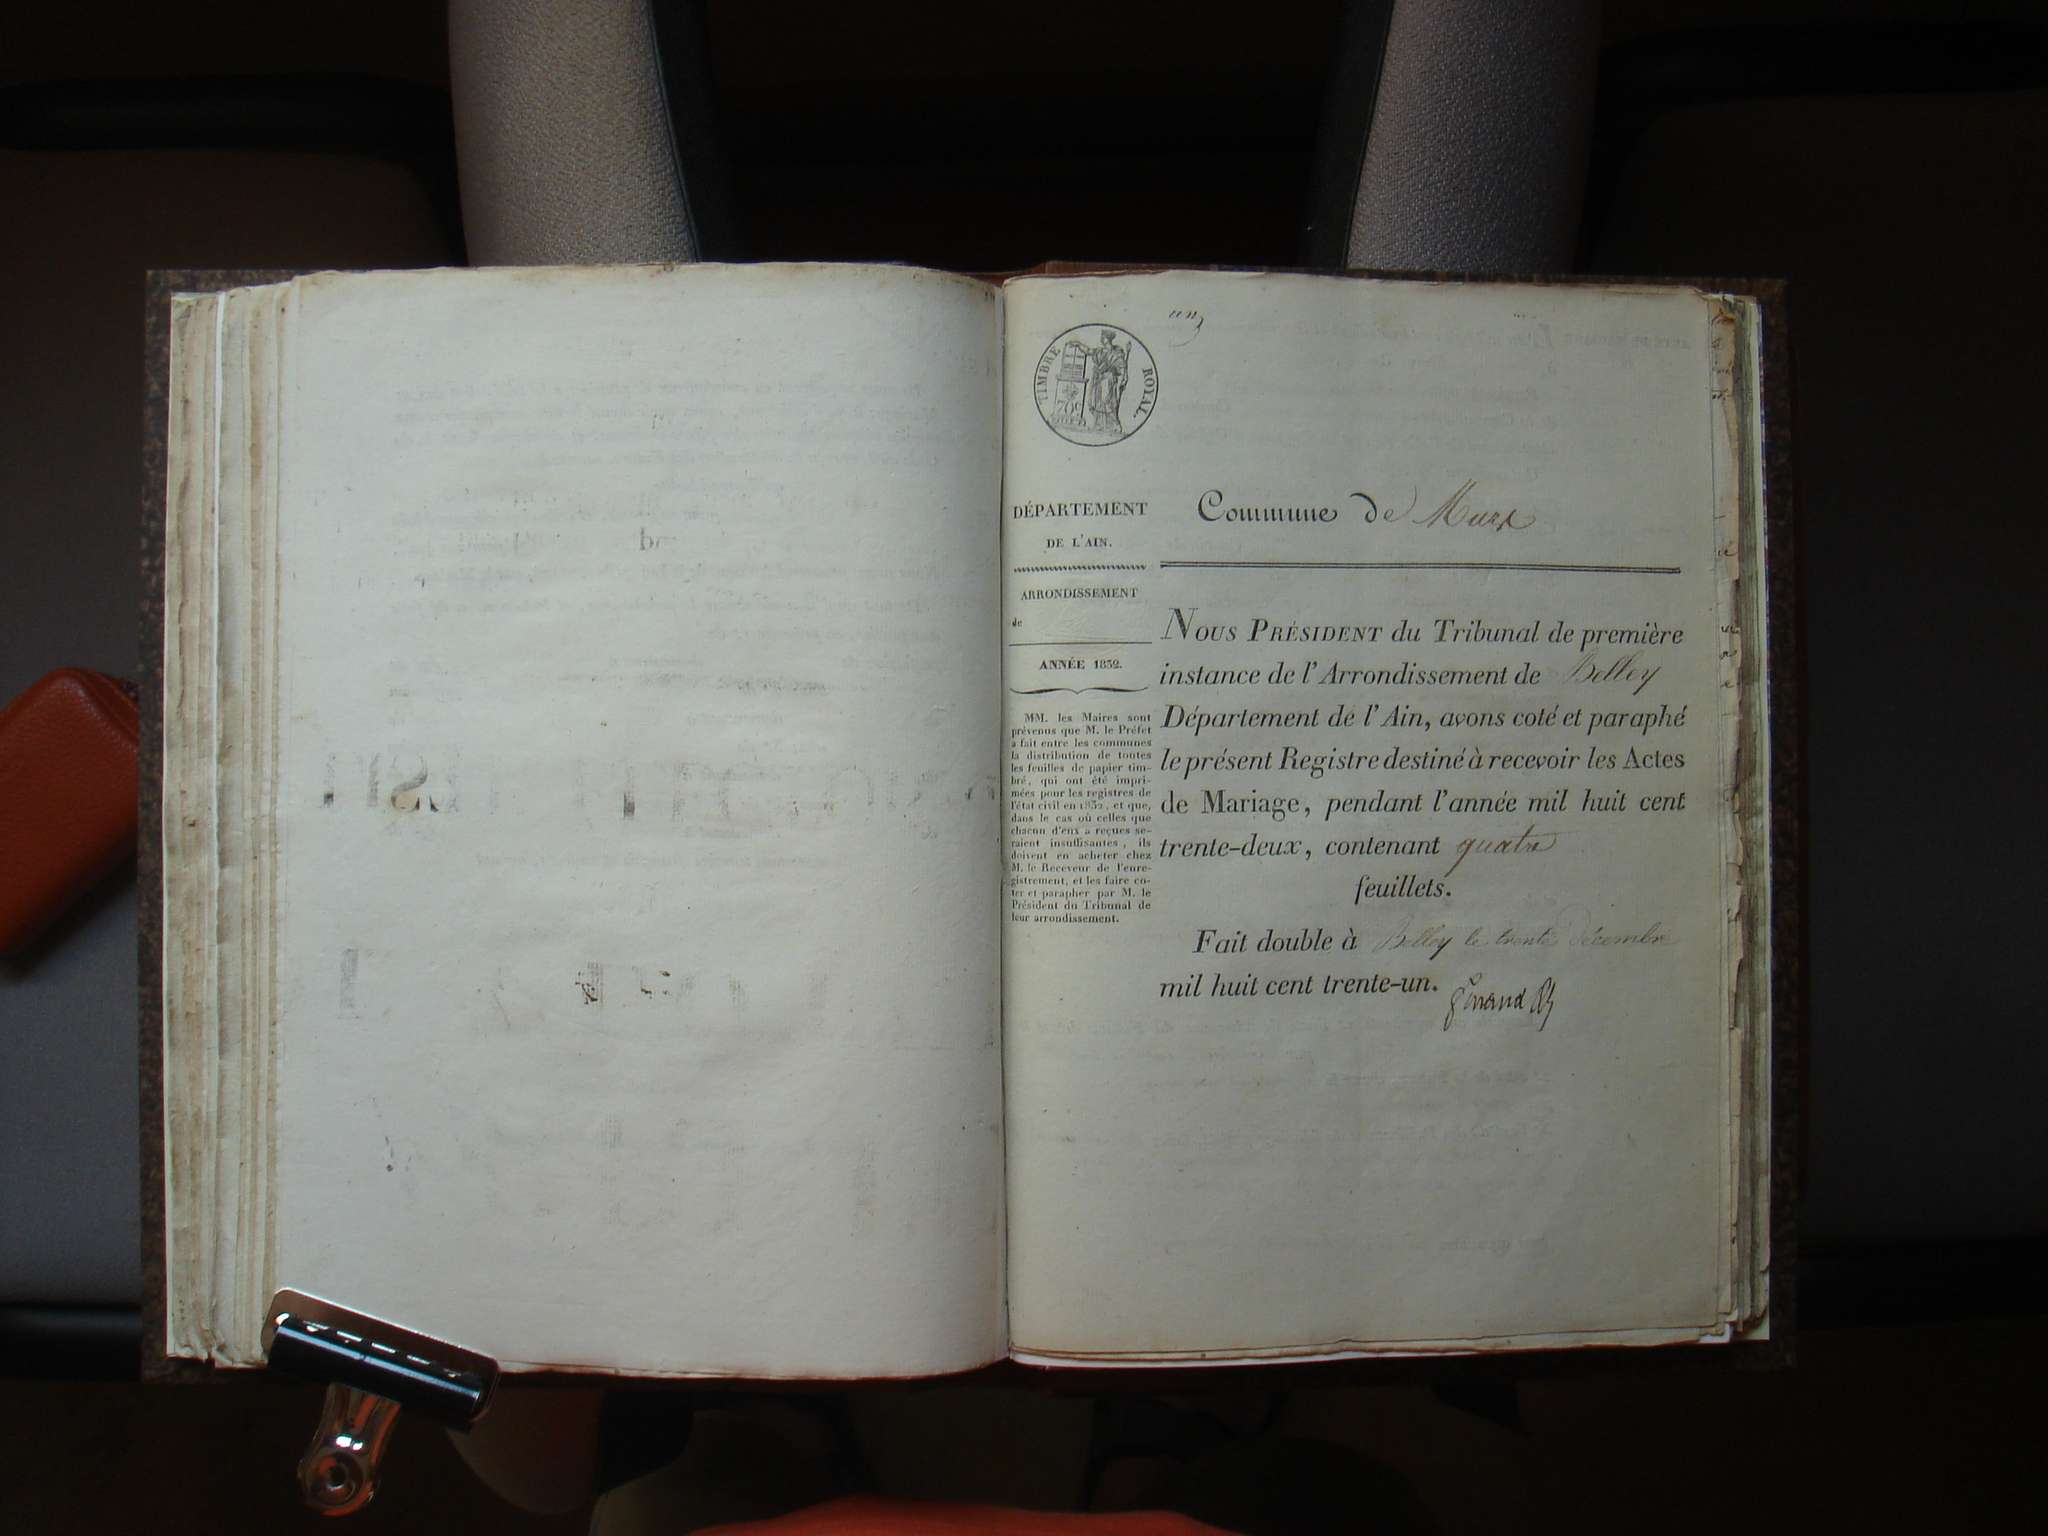 un
TIMBRE ROYAL.
70c
DÉPARTEMENT
DE L'AIN.
ARRONDISSEMENT
de
ANNÉE 1832.
MM. les Maires sont
prévenus que M. le Préfet
a fait entre les communes
la distribution de toutes
les feuilles de papier tim-
bré, qui ont été impri-
mées pour les registres de
l'état civil en 1832, et que,
dans le cas où celles que
chacun d'eux a reçues se-
raient insuffisantes, ils
doivent en acheter chez
M. le Receveur de l'enre-
gistrement, et les faire co-
ter et parapher par M. le
Président du Tribunal de
leur arrondissement.
Commune de Murs
NOUS PRÉSIDENT du Tribunal de première
instance de l'Arrondissement de Belley
Département de l'Ain, avons coté et paraphé
le présent Registre destiné à recevoir les Actes
de Mariage, pendant l'année mil huit cent
trente-deux, contenant quatre
feuillets.
Fait double à Belley le trente Décembre
mil huit cent trente-un.